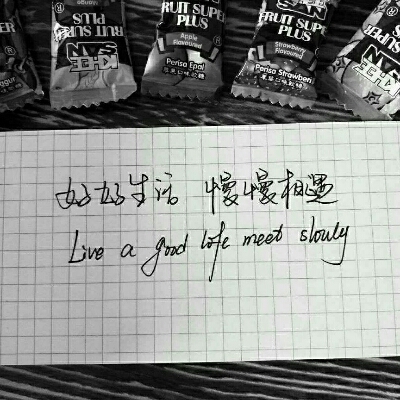 FRUIT SUPER
PLUS
KHEE
SAN
FRUIT SUPER
PLUS
Apple
Flavoured
Perisa Epal
FRUIT SUPER
PLUS
Strawberry
Flavoured
Perisa Strawberi
KHEE
SAN
好好生活 慢慢相遇
Live a good life meet slowly